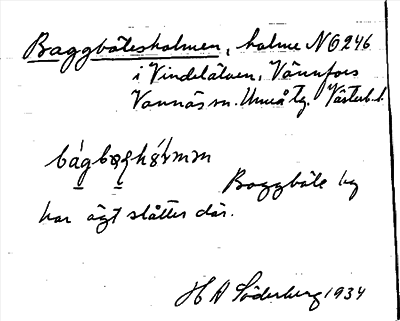 Baggbölesholmen, holme N Ö 246
i Vindelälven, Vännfors
Vännäs sn. Umeå tg. Västerb. l.
Baggböle by
har ägt slåtter där.
H A Söderberg 1934